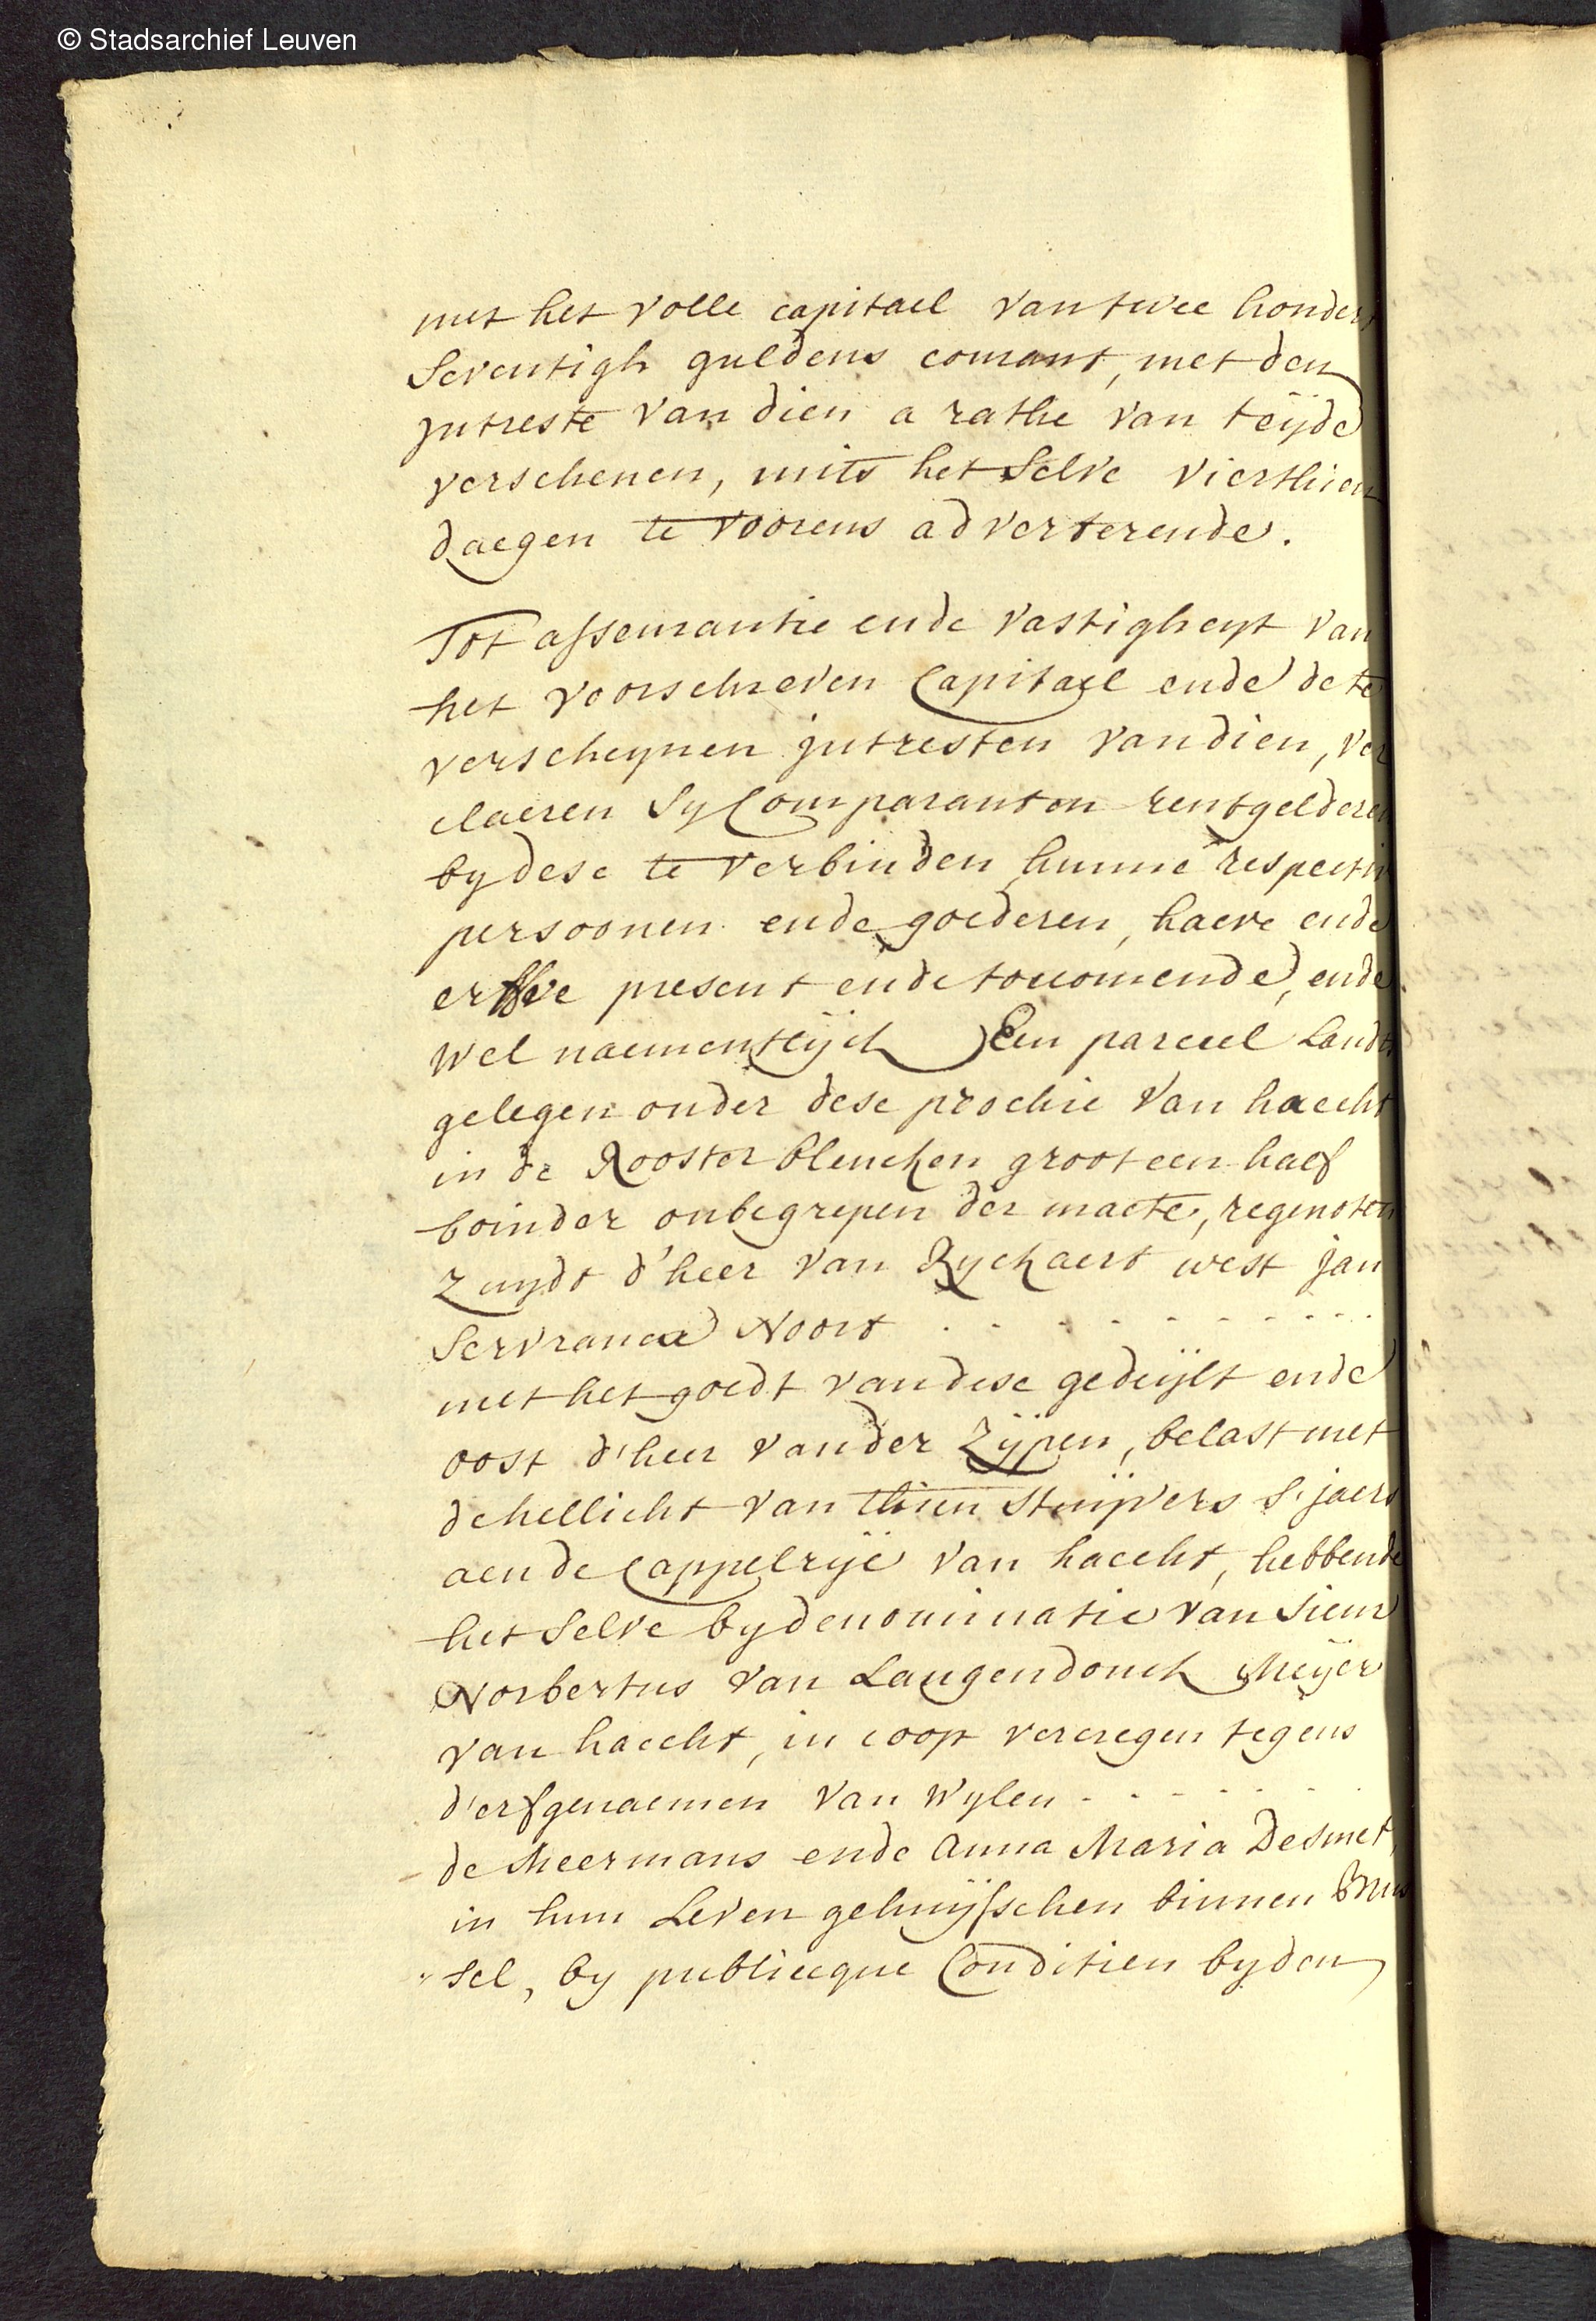 © Stadsarchief Leuven
met het volle capitael van twee hondert
Seventigh guldens courant, met den
jntreste van dien a rathe van teÿde
verschenen, mits het Selve vierthien
daegen te voorens adverterende.
Tot asseurantie ende vastigheyt van
het voorschreven Capitael ende de te
verscheynen jntresten van dien, ver
claeren Sy Comparanten rentgelderen
by dese te verbinden hunne respective
persoonen ende goederen, haeve ende
erffve present ende toecomende, ende
Wel naementlÿck Een parceel Landts
gelegen onder dese prochie van haecht
in de Rooster blencken groot een half
boinder onbegrepen der maete, regenoten
Zuydt d'heer van Ryckaert west jan
Servrancx Noort - - - - - - - - -
met het goedt van dese gedeÿlt ende
oost d'heer vander Zÿpen, belast met
de hellicht van thien Stuÿvers S'jaers
aen de Cappelrÿe van haecht, hebbende
het Selve by denominatie van Sieur
Norbertus van Langendonck Meÿer
van haecht, in coop vercregen tegens
d'erfgenaemen van Wylen - - - - - -
de Meermans ende Anna Maria Desmet,
in hun Leven gehuÿsschen binnen Brus
sel, by publicque Conditien by den